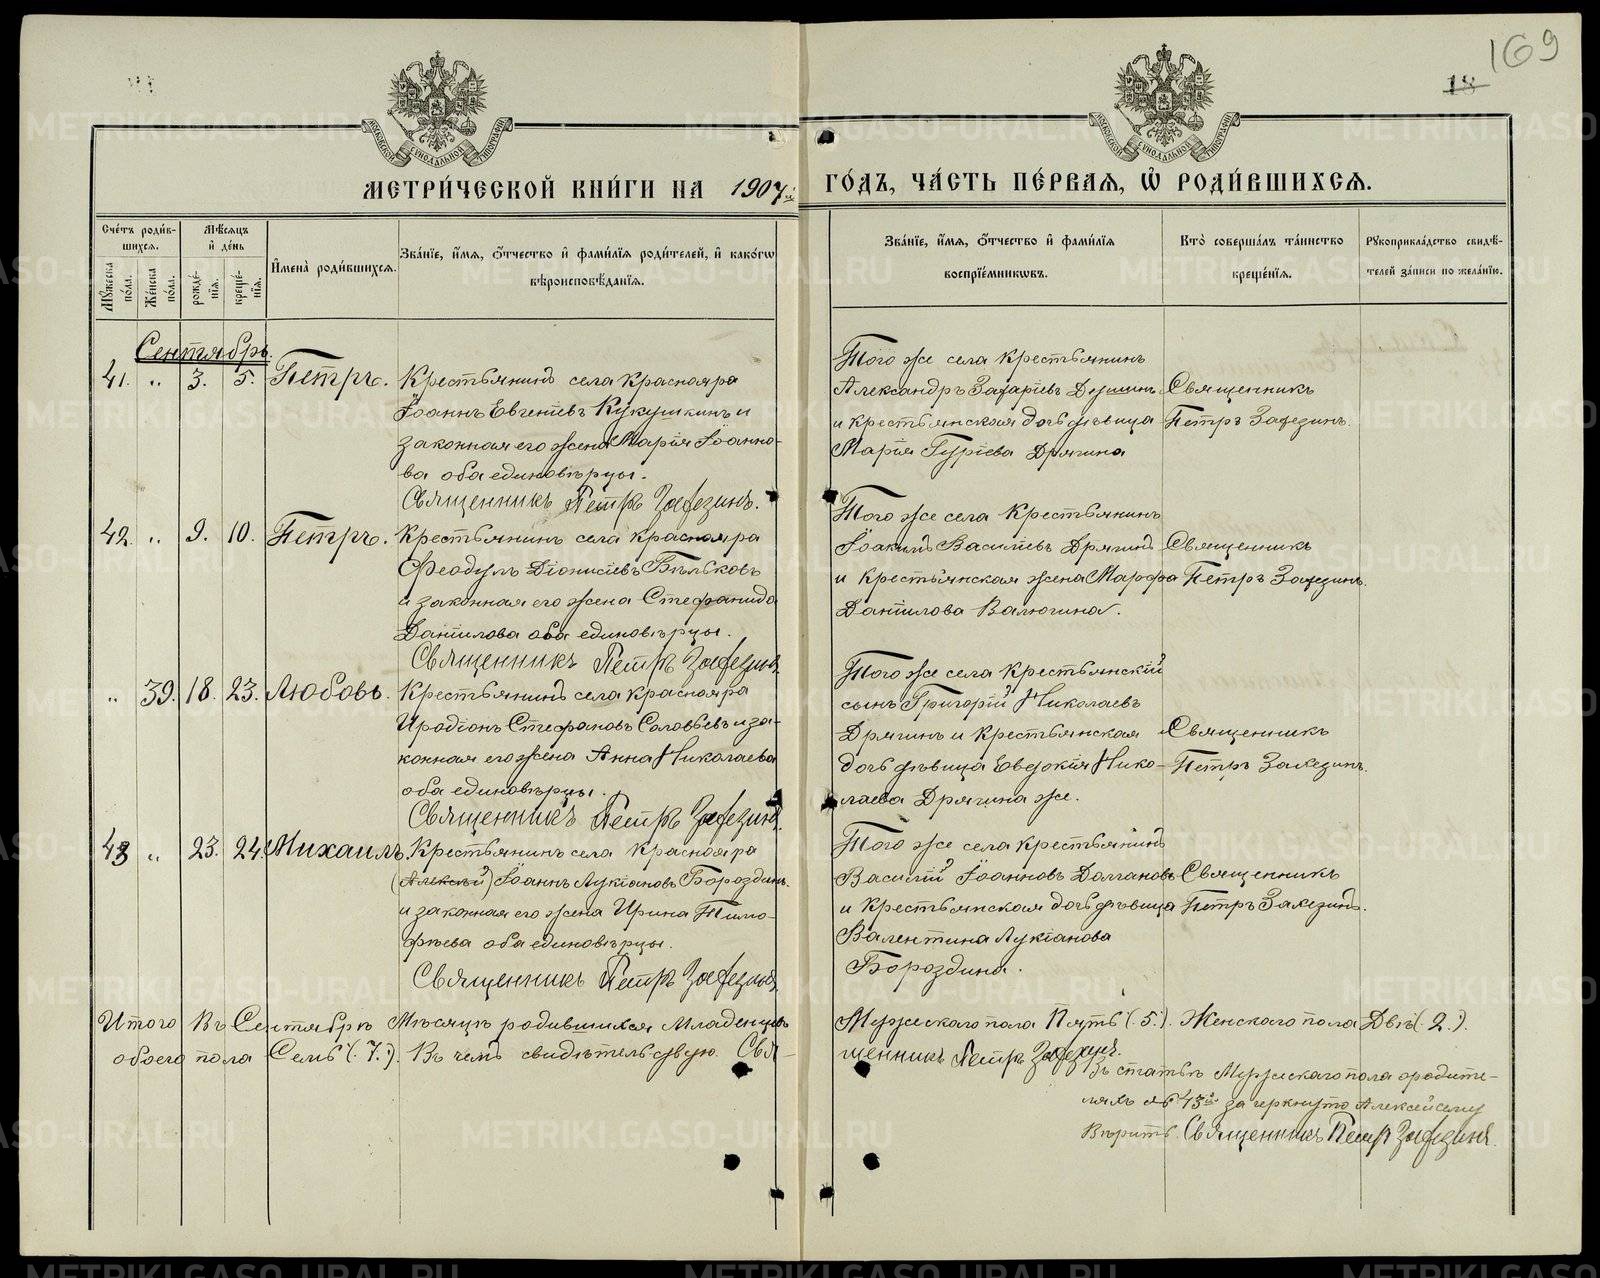 169
18
МЕТРИ́ЧЕСКОЙ КНИ́ГИ НА 1907й ГО́ДЪ, ЧА́СТЬ ПЕ́РВАЯ, Ѡ҆ РОДИ́ВШИХСЯ.
Сче́тъ роди́вшихся.
Му́жеска по́ла.
Же́нска по́ла.
Мѣ́сяцъ и҆ де́нь
рожде́нїя.
креще́нїя.
И҆мена̀ роди́вшихся.
Зва́нїе, и҆́мя, ѻ҆́тчество и҆ фами́лїя роди́телей, и҆ како́гѡ
вѣроисповѣ́данїя.
Зва́нїе, и҆́мя, ѻ҆́тчество и҆ фами́лїя
воспрїе́мникѡвъ.
Кто̀ соверша́лъ та́инство
креще́нїя.
Рꙋкоприкла́дство свидѣ́-
телей за́писи по жела́нїю.
Сентябрь.
41. " 3. 5. Петръ.
Крестьянинъ села Краснояра
Іоаннъ Евгеніевъ Кукушкинъ и
законная его жена Марія Іоанно-
ва оба единовѣрцы.
Священникъ Петръ Заҳезинъ.
Того же села крестьянинъ
Александръ Захаріевъ Душинъ
и крестьянская дочь дѣвица
Марія Гуріева Дрягина
Священникъ
Петръ
42. " 9. 10. Петръ.
Крестьянинъ села Краснояра
Феодулъ Діонисіевъ Бѣльковъ
и законная его жена Стефанида
Даніилова оба единовѣрцы.
Священникъ Петръ
Того же села крестьянинъ
Іоакимъ Василіевъ Дрягинъ
и крестьянская жена Марфа
Даніилова Валюгина.
Священникъ
Петръ
" 39. 18. 23. Любовь.
Крестьянинъ села Краснояра
Иродіонъ Стефановъ Соловьевъ и за-
конная его жена Анна Николаева
оба единовѣрцы.
Священникъ Петръ
Того же села крестьянскій
сынъ Григорій Николаевъ
Дрягинъ и крестьянская
дочь дѣвица Евдокія Нико-
лаева Дрягина же.
Священникъ
Петръ
43 " 23. 24. Михаилъ.
Крестьянинъ села Краснояра
(Алексѣй) Іоаннъ Лукіановъ Бороздинъ
и законная его жена Ирина Тимо-
фѣева оба единовѣрцы.
Священникъ Петръ
Того же села крестьянинъ
Василій Іоанновъ Долгановъ
и крестьянская дочь дѣвица
Валентина Лукіанова
Бороздина.
Священникъ
Петръ
Итого Въ Сентябрѣ Мѣсяцѣ родившихся Младенцевъ Мужескаго пола Пять (5.). Женскаго пола Двѣ (2.).
обоего пола Семь (7.). Въ чемъ свидѣтельствую. Свя-
щенникъ Петръ
Въ статьѣ Мужескаго пола о родите-
ляхъ № 43й зачеркнуто Алексѣй сему
Вѣрить. Священникъ Петръ